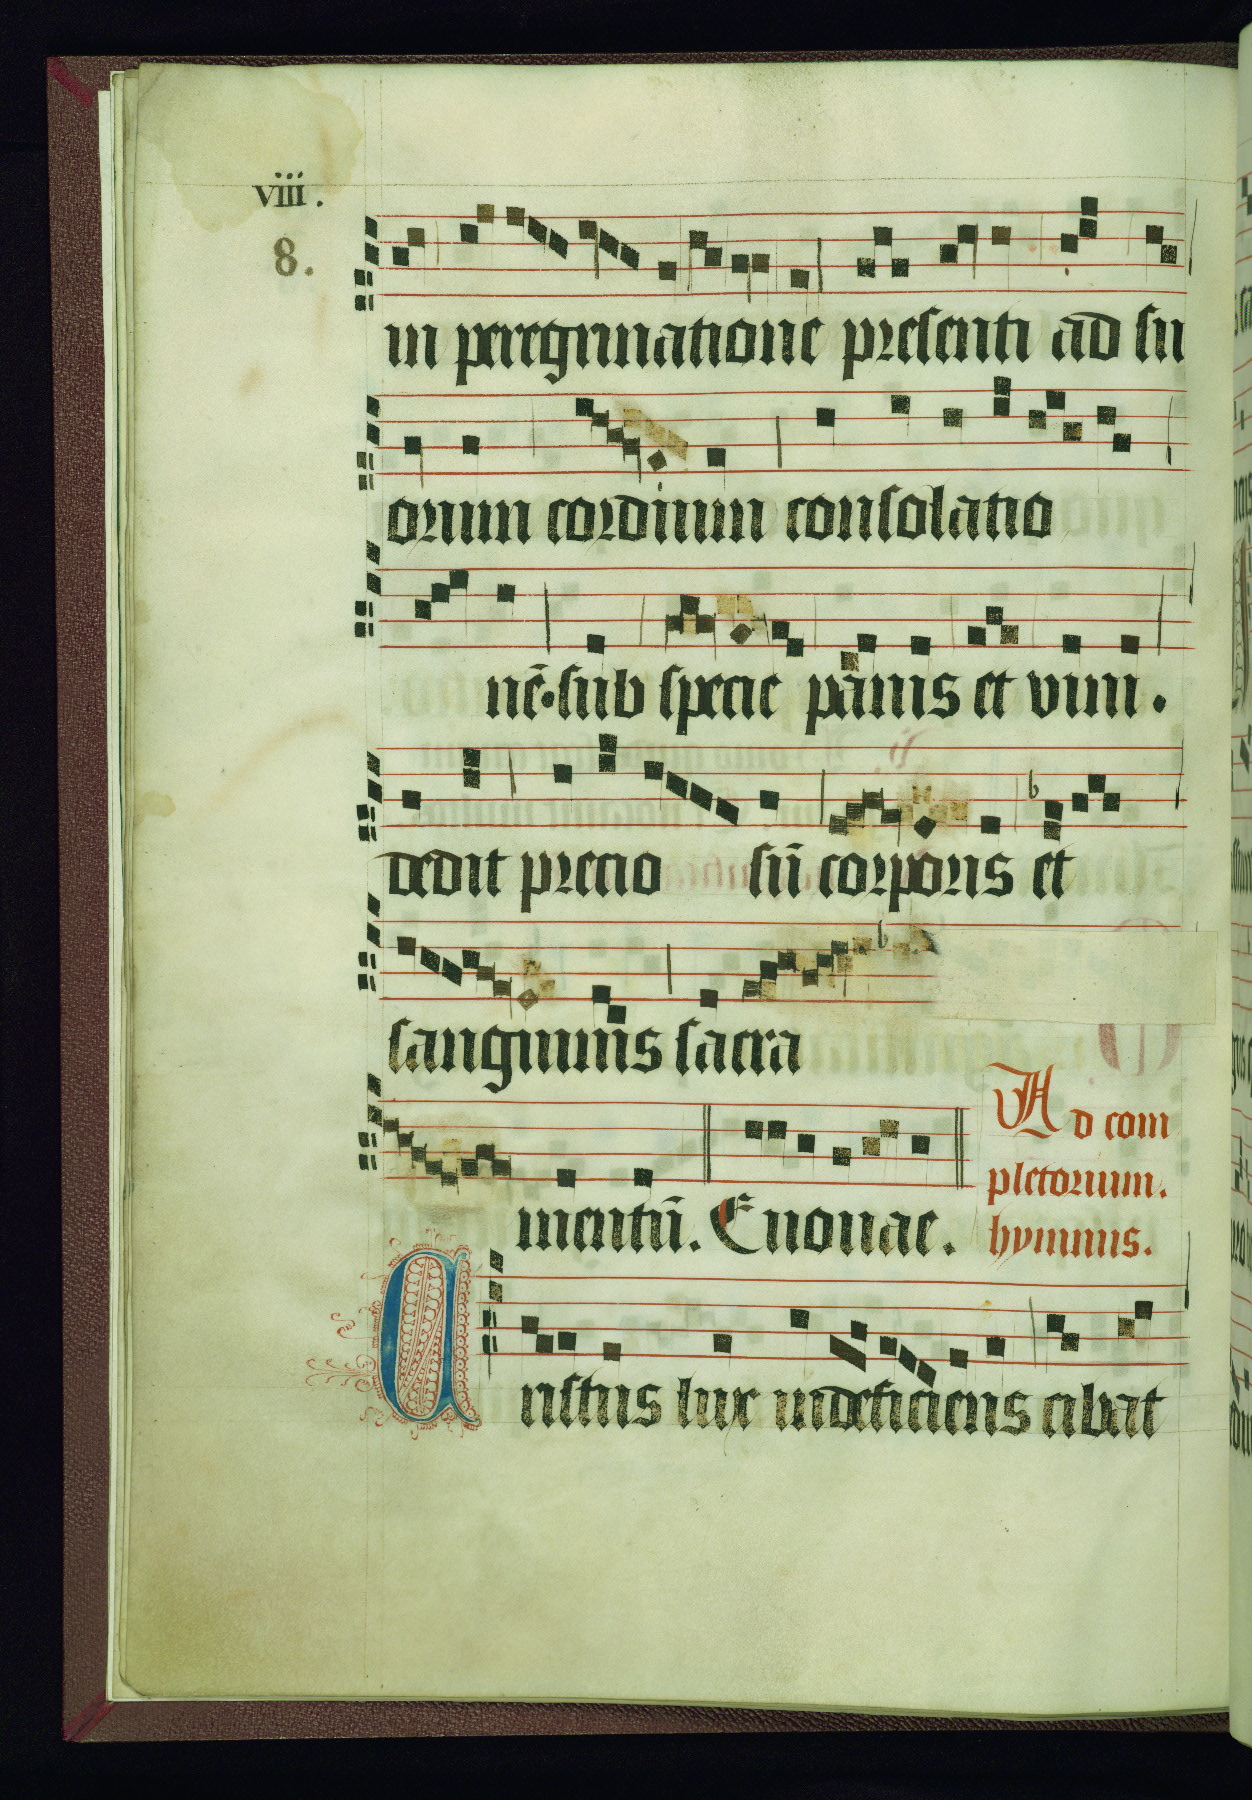 viii.
8.
in peregrinatione presenti ad su
orum cordium consolatio
nē. sub specie panis et vini.
dedit precio sū corporis et
sanguinis sacra
mentū. Euouae.
Ad com
pletorium.
hymnus.
Cristus lux indeficiens cibat